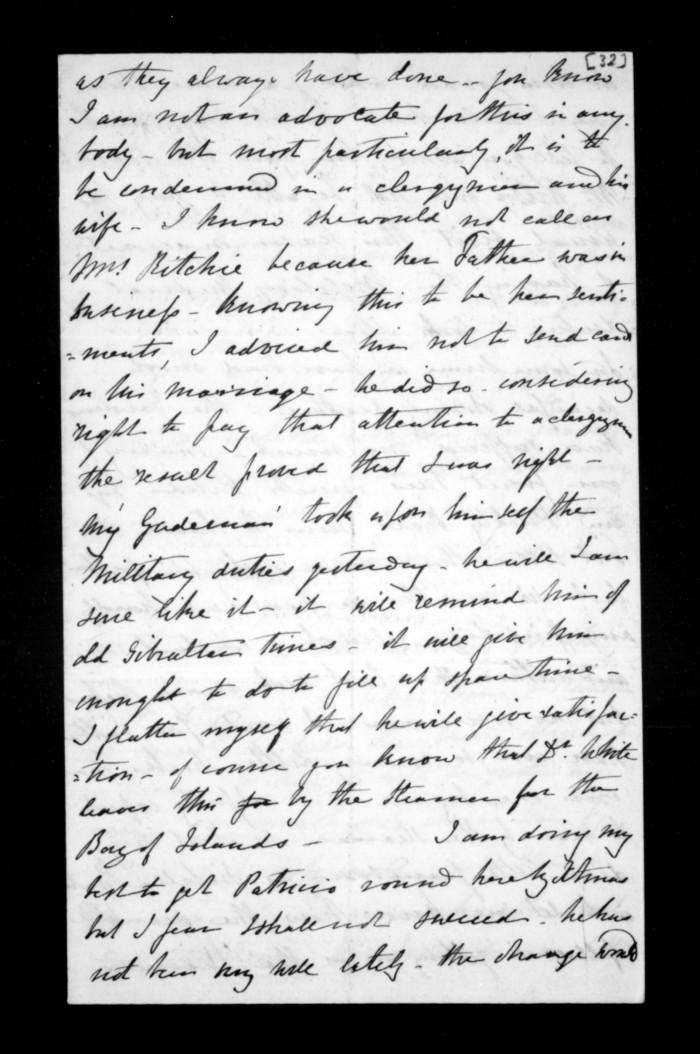 [32]
as they always have done - you know
I am not an advocate for this in any
body - but most particularly, it is to
be condemned in a clergyman and his
wife - I know she would not call on
Mrs. Ritchie because her Father was in
business - Knowing this to be her senti-
=ments, I adviced him not to send cards
on his marriage - he did so - considering
right to pay that attention to a clergyman
the result proved that I was right -
My Gudeman took upon himself the
Military duties yesterday - he will I am
sure like it - it will remind him of
old Gibraltar times - it will give him
enought to do to fill up spare time -
I flatter myself that he will give satisfac=
=tion - of course you know that Dr. White
leaves this for by the Steamer for the
Bay of Islands - I am doing my
best to get Patricio round here by Xtmas
but I fear I shall not succeed - he has
not been very well lately - the change would